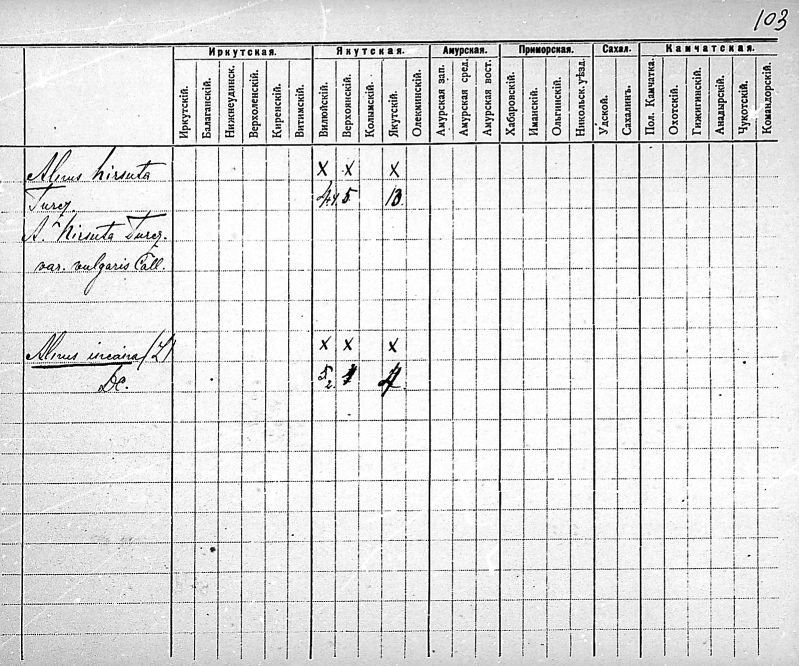 103
Иркутская. Якутская. Амурская. Приморская. Сахал. Камчатская.
Иркутскій. Балаганскій. Нижнеудинск. Верхоленскій. Киренскій. Витимскій. Вилюйскій. Верхоянскій. Колымскій. Якутскій. Олекминскій. Амурская зап. Амурская сред. Амурская вост. Хабаровскій. Иманскій. Ольгинскій. Никольск. уѣзд. Удской. Сахалинъ. Пол. Камчатка. Охотскій. Гижигинскій. Анадырскій. Чукотскій. Командорскій.
Alnus hirsuta x x x
Turcz. 5
A. hirsuta Turcz.
var. vulgaris Call.
Alnus incana (L) x x x
DC. 5 2. 4